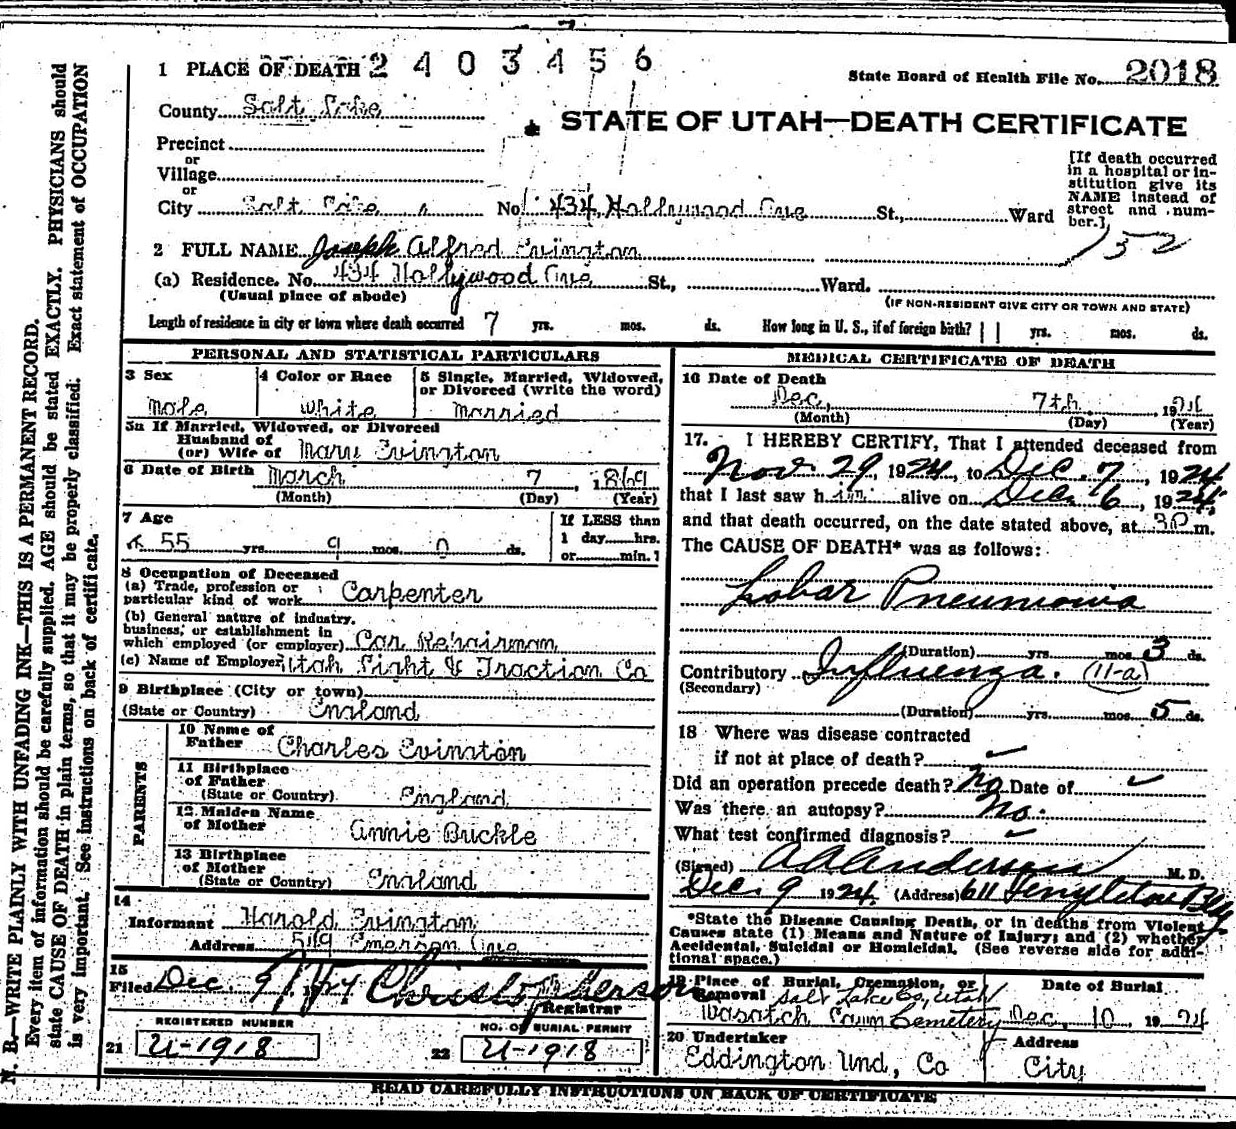 N. B.—WRITE PLAINLY WITH UNFADING INK—THIS IS A PERMANENT RECORD.
Every item of information should be carefully supplied. AGE should be stated EXACTLY. PHYSICIANS should
state CAUSE OF DEATH in plain terms, so that it may be properly classified. Exact statement of OCCUPATION
is very important. See instructions on back of certificate.
1 PLACE OF DEATH 2 4 0 3 4 5 6
State Board of Health File No. 2018
County Salt Lake
STATE OF UTAH—DEATH CERTIFICATE
Precinct
or
Village
or
City Salt Lake No. 434 Hollywood Ave St., Ward
[If death occurred
in a hospital or in-
stitution give its
NAME instead of
street and num-
ber.]
152
2 FULL NAME Joseph Alfred Evington
(a) Residence. No. 434 Hollywood Ave St., Ward.
(Usual place of abode) (IF NON-RESIDENT GIVE CITY OR TOWN AND STATE)
Length of residence in city or town where death occurred 7 yrs. mos. ds. How long in U. S., if of foreign birth? 11 yrs. mos. ds.
PERSONAL AND STATISTICAL PARTICULARS
3 Sex 4 Color or Race 5 Single, Married, Widowed,
or Divorced (write the word)
Male White Married
5a If Married, Widowed, or Divorced
Husband of
(or) Wife of Mary Evington
6 Date of Birth March 7, 1869
(Month) (Day) (Year)
7 Age If LESS than
55 yrs. 9 mos. 0 ds. 1 day hrs.
or min.?
8 Occupation of Deceased
(a) Trade, profession or
particular kind of work Carpenter
(b) General nature of industry,
business, or establishment in
which employed (or employer) Car Repairman
(c) Name of Employer Utah Light & Traction Co
9 Birthplace (City or town)
(State or Country) England
PARENTS
10 Name of
Father Charles Evington
11 Birthplace
of Father
(State or Country) England
12 Maiden Name
of Mother Annie Buckle
13 Birthplace
of Mother
(State or Country) England
14
Informant Harold Evington
Address 549 Emerson Ave
15
Filed Dec. 9, 1924 Christopherson
Registrar
REGISTERED NUMBER NO. OF BURIAL PERMIT
21 U-1918 22 U-1918
MEDICAL CERTIFICATE OF DEATH
16 Date of Death
Dec, 7th, 1924
(Month) (Day) (Year)
17. I HEREBY CERTIFY, That I attended deceased from
Nov. 29, 1924, to Dec. 7, 1924
that I last saw him alive on Dec. 6, 1924,
and that death occurred, on the date stated above, at 3 P m.
The CAUSE OF DEATH* was as follows:
Lobar Pneumonia
(Duration) yrs. mos. 3 ds.
Contributory Influenza. (11-a)
(Secondary)
(Duration) yrs. mos. 5 ds.
18 Where was disease contracted
if not at place of death? ✓
Did an operation precede death? No Date of ✓
Was there an autopsy? No.
What test confirmed diagnosis? ✓
(Signed) Anderson M. D.
Dec. 9 1924. (Address) 611 Templeton Bldg
*State the Disease Causing Death, or in deaths from Violent
Causes state (1) Means and Nature of Injury; and (2) whether
Accidental, Suicidal or Homicidal. (See reverse side for addi-
tional space.)
19 Place of Burial, Cremation, or Date of Burial
Removal Salt Lake Co, Utah
Wasatch Lawn Cemetery Dec, 10 1924
20 Undertaker Address
Eddington Und, Co City
READ CAREFULLY INSTRUCTIONS ON BACK OF CERTIFICATE